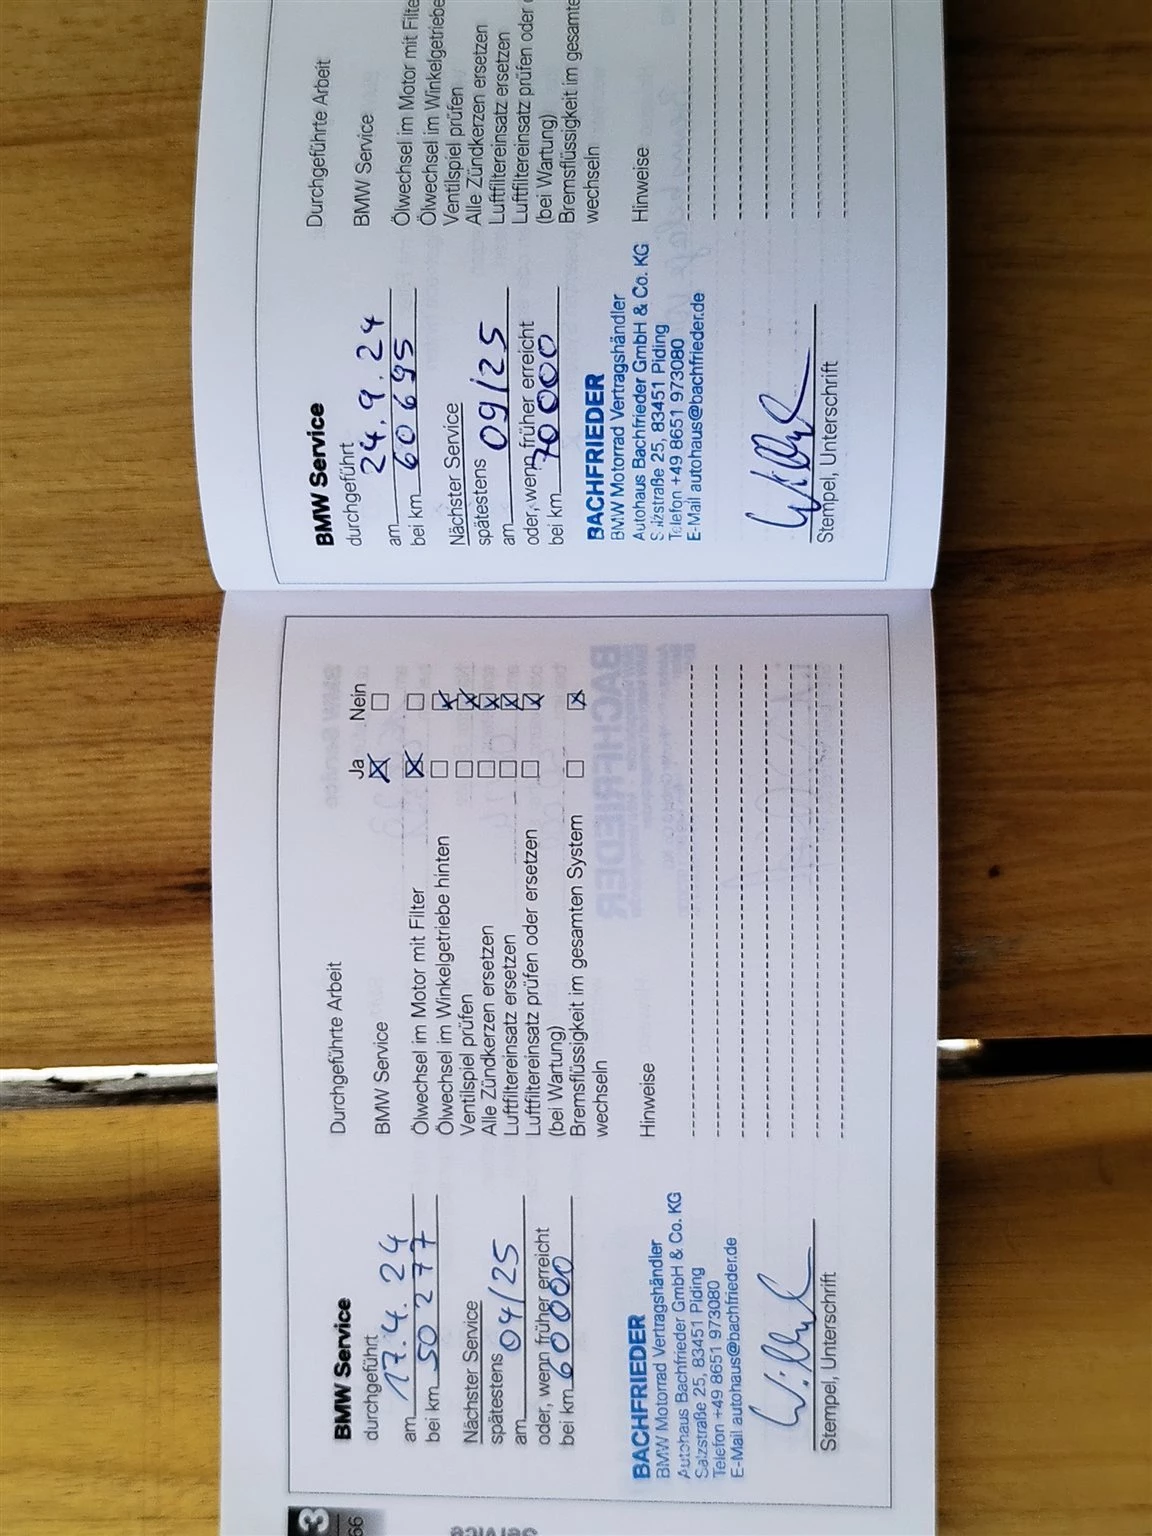 BMW Service
durchgeführt
am 17.4.24
bei km 50277
Nächster Service
spätestens
am 04/25
oder, wenn früher erreicht
bei km 60000
BACHFRIEDER
BMW Motorrad Vertragshändler
Autohaus Bachfrieder GmbH & Co. KG
Salzstraße 25, 83451 Piding
Telefon +49 8651 973080
E-Mail autohaus@bachfrieder.de
Stempel, Unterschrift
Durchgeführte Arbeit
Ja Nein
BMW Service
Ölwechsel im Motor mit Filter
Ölwechsel im Winkelgetriebe hinten
Ventilspiel prüfen
Alle Zündkerzen ersetzen
Luftfiltereinsatz ersetzen
Luftfiltereinsatz prüfen oder ersetzen
(bei Wartung)
Bremsflüssigkeit im gesamten System
wechseln
Hinweise
BMW Service
durchgeführt
am 24.9.24
bei km 60695
Nächster Service
spätestens
am 09/25
oder, wenn früher erreicht
bei km 70000
BACHFRIEDER
BMW Motorrad Vertragshändler
Autohaus Bachfrieder GmbH & Co. KG
Salzstraße 25, 83451 Piding
Telefon +49 8651 973080
E-Mail autohaus@bachfrieder.de
Stempel, Unterschrift
Durchgeführte Arbeit
BMW Service
Ölwechsel im Motor mit Filte
Ölwechsel im Winkelgetriebe
Ventilspiel prüfen
Alle Zündkerzen ersetzen
Luftfiltereinsatz ersetzen
Luftfiltereinsatz prüfen oder
(bei Wartung)
Bremsflüssigkeit im gesamte
wechseln
Hinweise
3
66
Service